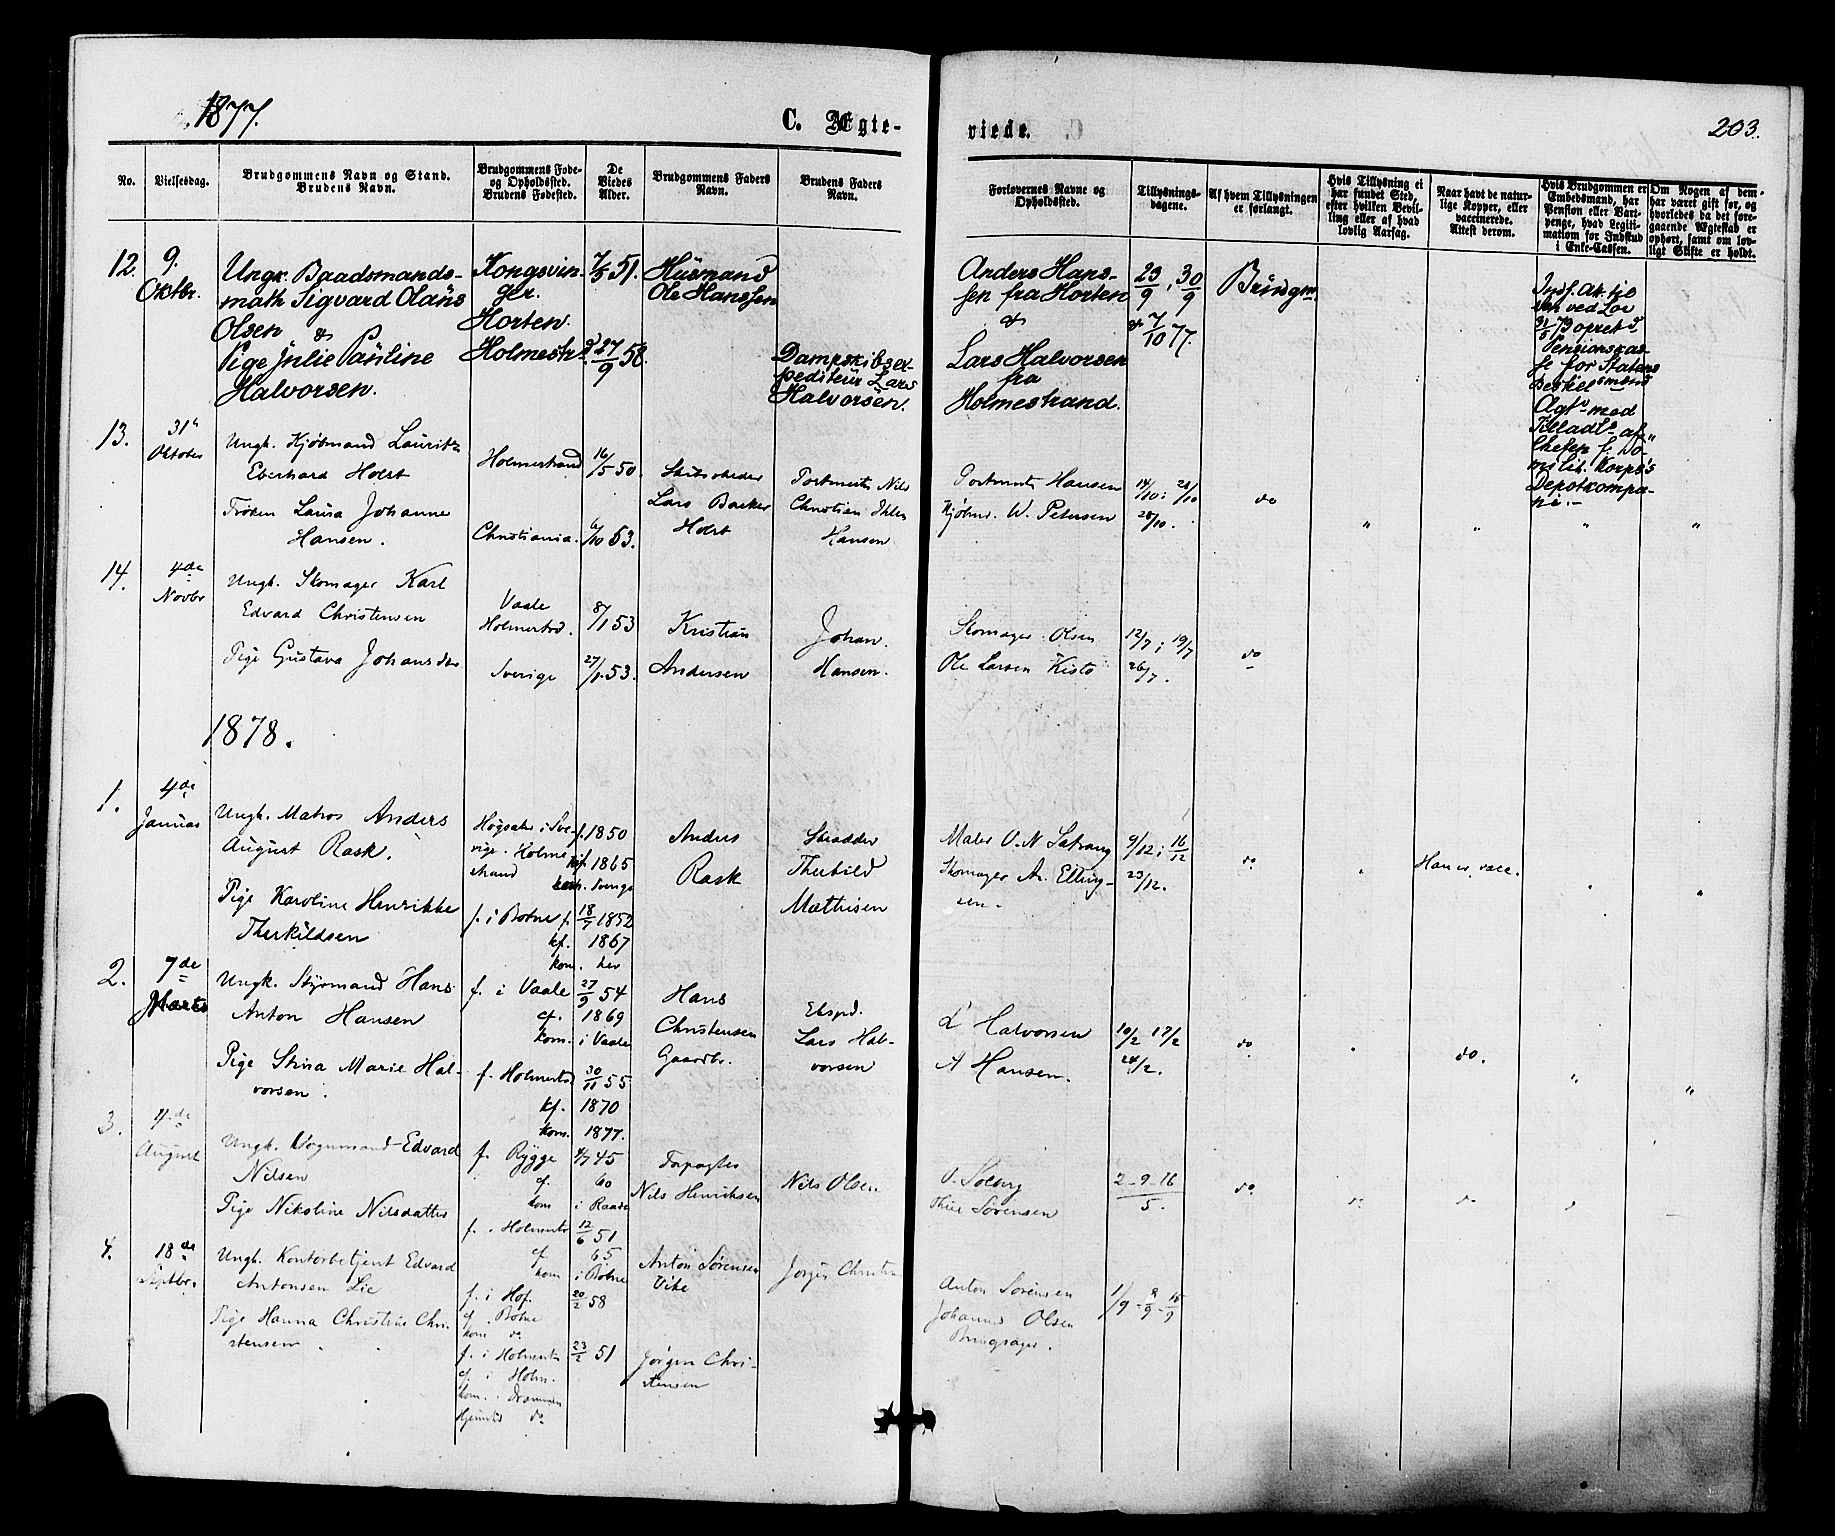 1877.
C. Ægte-
viede.
203.
No.
Vielsesdag.
Brudgommens Navn og Stand.
Brudens Navn.
Brudgommens Føde-
og Opholdssted.
Brudens Fødested.
De
Viedes
Alder.
Brudgommens Faders
Navn.
Brudens Faders
Navn.
Forlovernes Navne og
Opholdssted.
Tillysnings-
dagene.
Af hvem Tillysningen
er forlangt.
Hvis Tillysning ei
har fundet Sted,
efter hvilken Bevil-
ling eller af hvad
lovlig Aarsag.
Naar havt de natur-
lige Kopper, eller
vaccinerede.
Attest derom.
Hvis Brudgommen er
Embedsmand, har
Pension eller Vart-
penge, hvad Legiti-
mation for Indskud
i Enke-Cassen.
Om Nogen af dem
har været gift før, og
hvorledes da det fore-
gaaende Ægteskab er
ophørt, samt om lov-
ligt Skifte er holdt.
12.
9.
Oktbr.
Ungk. Baadsmands-
math Sigvard Olaus
Olsen &
Pige Julie Pauline
Halvorsen.
Kongsvin-
ger.
Horten.
Holmestrd
7/5 51.
27/9 58.
Husmand
Ole Hanssen
Dampskibsex-
pediteur Lars
Halvorsen.
Anders Hans-
sen fra Horten
&
Lars Halvorsen
fra
Holmestrand.
23/9, 30/9
& 7/10 77.
Brudgm.
ved Lov
opret
Pensionskas-
se for Statens
Betjent
med
af
Chefen f.
Korps's
Depotkompa-
ni.-
13.
31te
Oktober
Ungk. Kjøbmand Lauritz
Eberhard Holst
Frøken Laura Johanne
Hansen.
Holmestrand
Christiania.
16/5 50
6/10 53.
Skibsreder
Lars Backer
Holst
Portmester Nils
Christian Ihlen
Hansen
Portmester Hansen
Kjøbm. W. Petersen
14/10; 21/10
28/10.
do
" " " "
14.
4de
Novbr
Ungk. Skomager Karl
Edvard Christensen
Pige Gustava Johansdtr
Vaale
Holmestrd.
Sverige
8/1 53
27/8 53.
Kristian
Andersen
Johan
Hansen.
Skomager Olsen
Ole Larsen Kisto
12/7; 19/7
26/7.
do
1878.
1.
4de
Januar
Ungk. Matros Anders
August Rask.
Pige Karoline Henrikke
Therkildsen
Høgsater i Sve-
rige. Holme-
strand
f. i Botne
f. 1850
kf. 1865
Sverige
f. 18/7 1852
kf. 1867
kom. her
Anders
Rask
Skrædder
Therkild
Mathisen
Maler O. N.
Skomager Ar. Elling-
sen.
9/12; 16/12
23/12.
do
Han er vacc.
2.
7de
Marts
Ungk. Styrmand Hans
Anton Hansen
Pige Stina Marie Hal-
vorsen.
f. i Vaale
f. Holmestrd
27/9 54
cf. 1869
kom. i Vaale
30/11 55
kf. 1870
kom. 1877.
Hans
Christensen
Gaardbr.
Ekspd.
Lars Hal-
vorsen
L Halvorsen
A Hansen.
10/2 17/2
24/2.
do
do.
"
"
3.
4de
August
Ungk. Vognmand Edvard
Nilsen
Pige Nikoline Nilsdatter
f. Rygge
45
cf. 60
kom i Raade
f. i Holmestr
12/6 51
cf. 65
kom i Botne
Forpagter
Nils Henriksen
Nils Olsen
O. Solberg
Sörensen
2-9-16
5.
do
do
do
4.
18de
Septbr.
Ungk. Kontorbetjent Edvard
Antonsen Lie
Pige Hanna Christine Chri-
stensen.
f. i Hof.
cf. Botne
kom do
f. i Holmestr
cf. i Holm.
kom. i Drammen
do
20/2 58
23/2 51
Anton Sørensen
Vike
Jørgen Chri-
stensen
Jørgen Christen
Anton Sørensen
Johannes Olsen
1/9 - 8/9 - 15/9